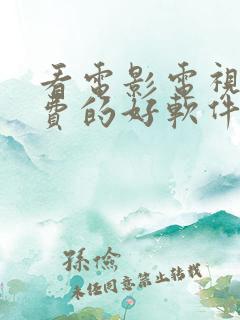 看電影電視
費的好軟件
孫儉
未经同意禁止转载